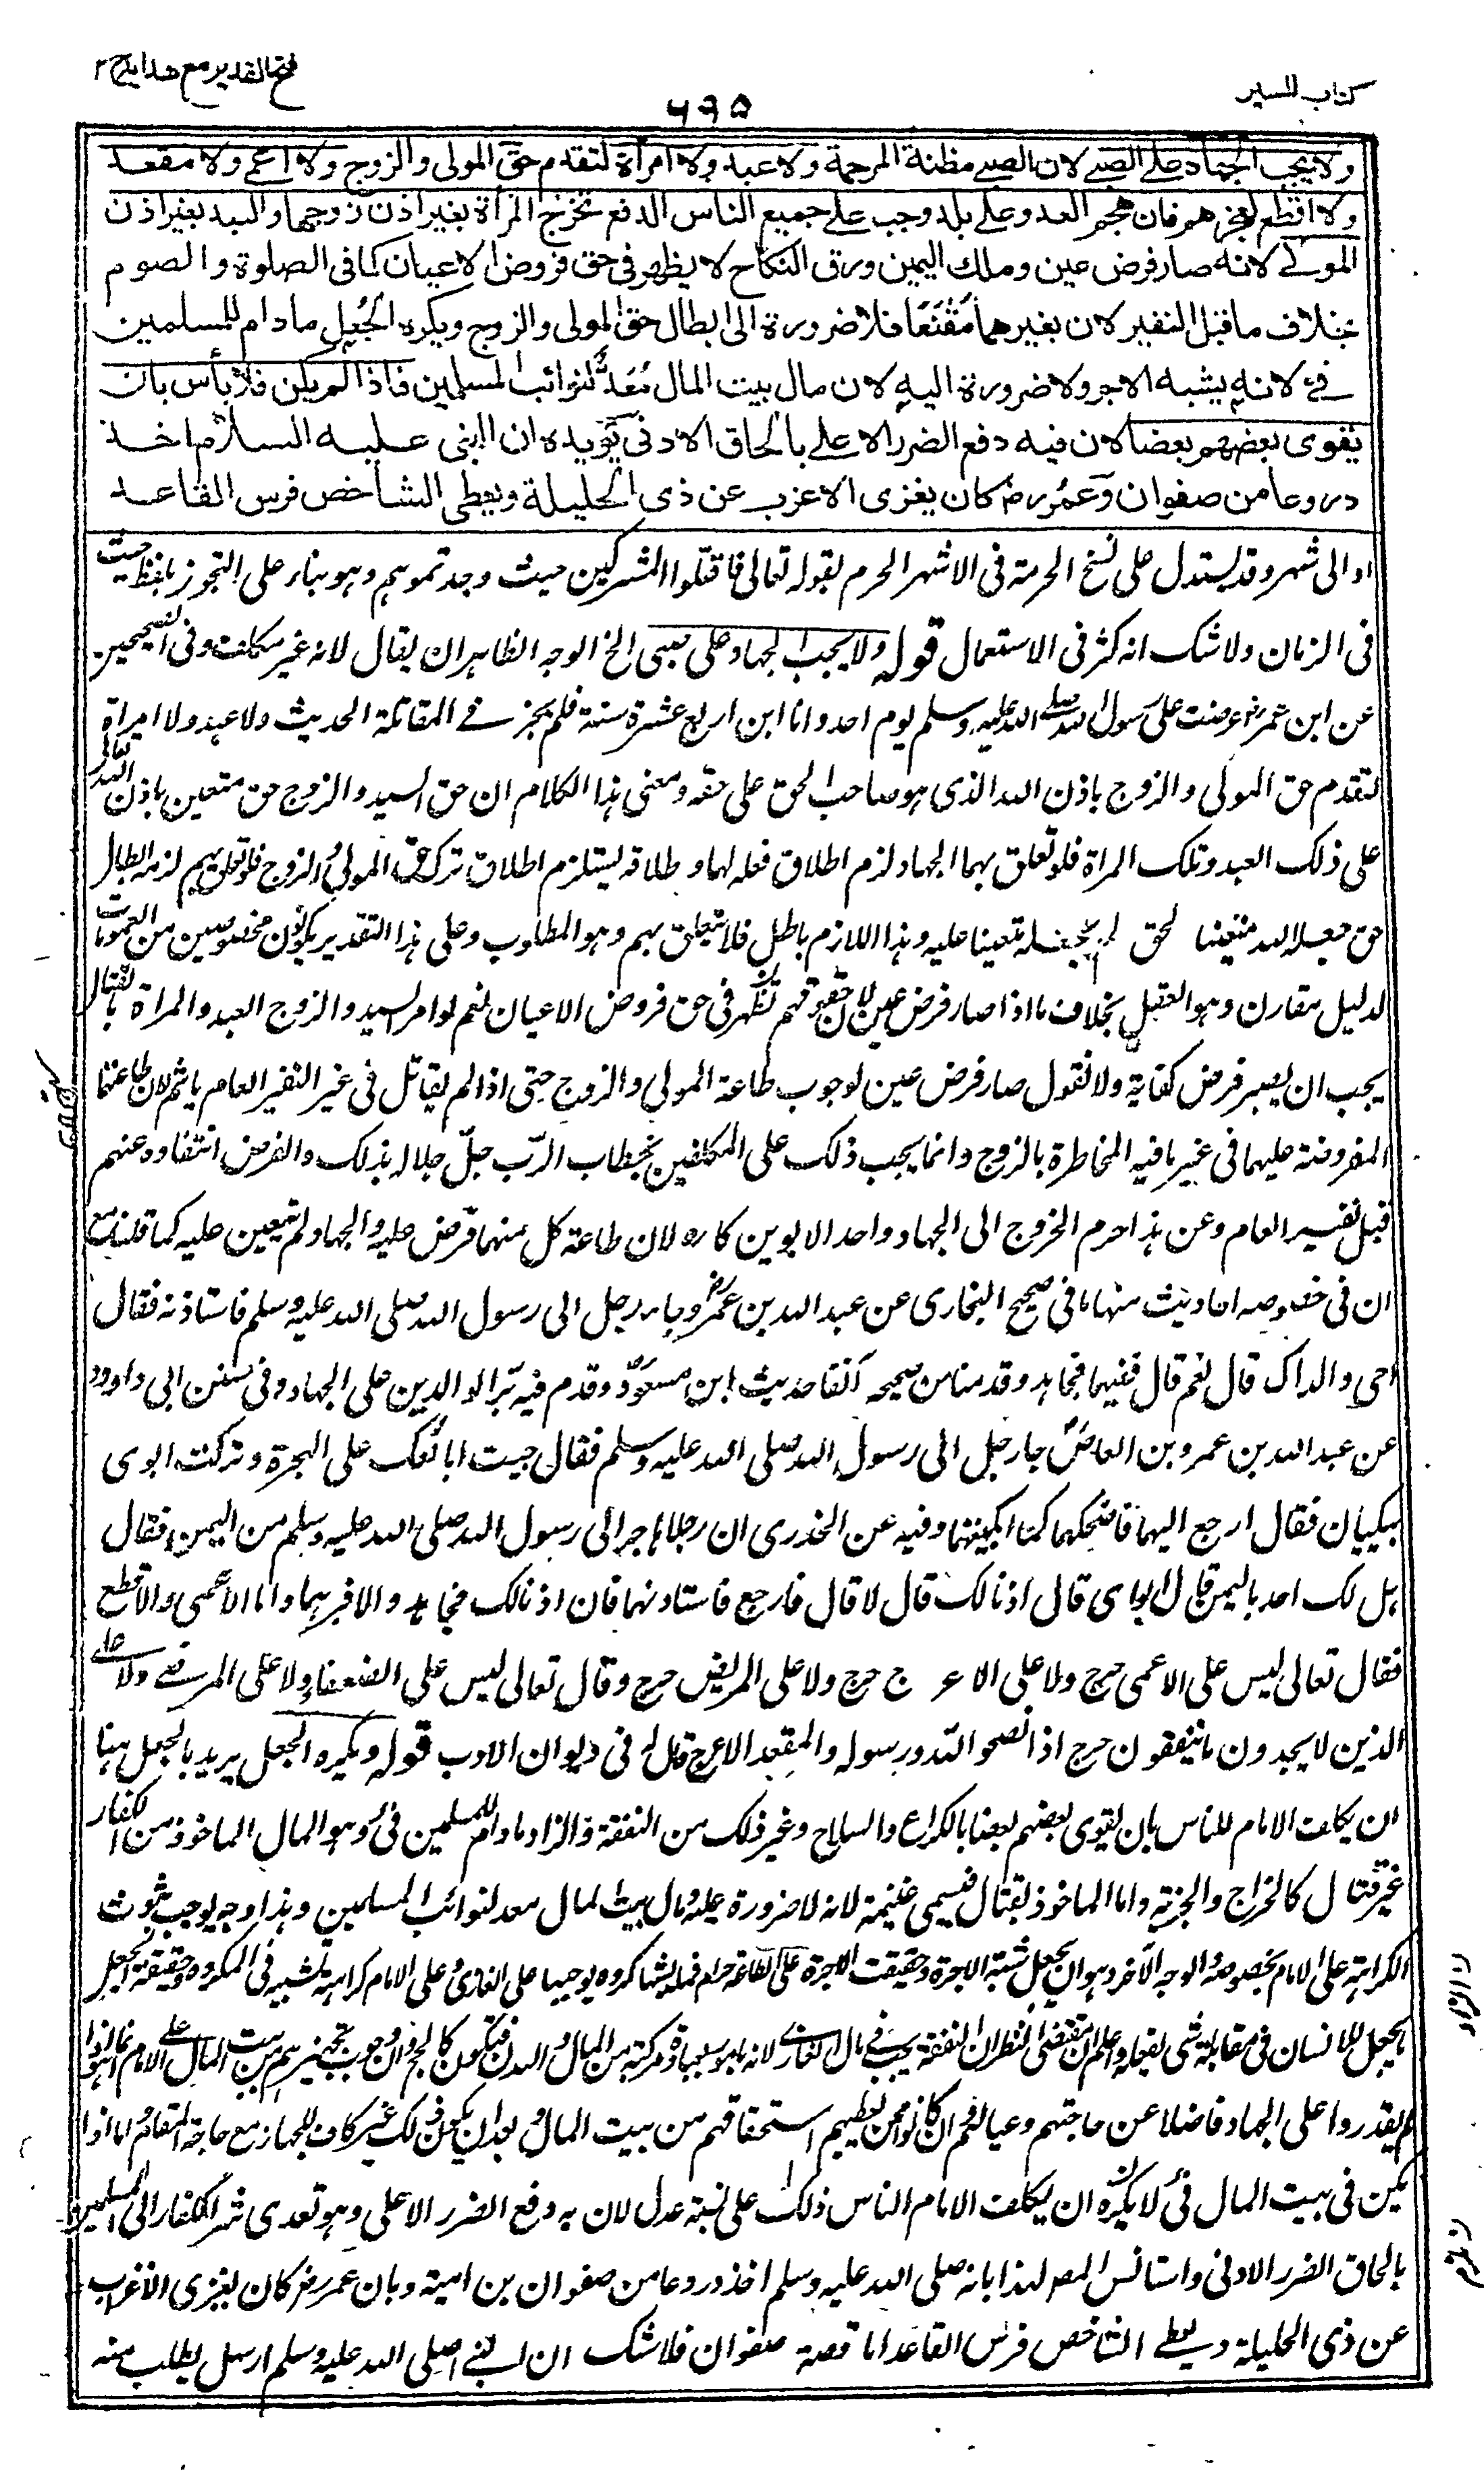 فتح القدير مع هدايه ج ٢
٦٩٥
كتاب السير
ولا يجب الجهاد على الصبي لان الصبي مظنة المرحمة ولا عبد ولا امرأة لتقدم حق المولى والزوج ولا اعمى ولا مقعد
ولا اقطع لعجزهم فان هجم العدو على بلد وجب على جميع الناس الدفع تخرج المرأة بغير اذن زوجها والعبد بغير اذن
المولى لانه صار فرض عين وملك اليمين ورق النكاح لا يظهر في حق فروض الاعيان كما في الصلوة والصوم
بخلاف ما قبل النفير لان بغيرهما مَقْنَعًا فلا ضرورة الى ابطال حق المولى والزوج ويكره الجُعل ما دام للمسلمين
فئ لانه يشبه الاجر ولا ضرورة اليه لان مال بيت المال مُعَدٌّ لنوائب المسلمين فاذا لم يكن فلا بأس بان
يقوى بعضهم بعضا لان فيه دفع الضرر الاعلى بالحاق الادنى يؤيده ان النبي عليه السلام اخذ
دروعا من صفوان وعمر رض كان يغزى الاعزب عن ذى الحليلة ويعطى الشاخص فرس القاعد
او الى شهر وقد يستدل على نسخ الحرمة فى الاشهر الحرم بقوله تعالى فاقتلوا المشركين حيث وجدتموهم وهو بناء على التجوز بلفظ حيث
فى الزمان ولا شك انه كثر فى الاستعمال قوله ولا يجب الجهاد على صبى الخ الوجه الظاهر ان يقال لانه غير مكلف وفى الصحيحين
عن ابن عمر رض عرضت على رسول الله صلى الله عليه وسلم يوم احد وانا ابن اربع عشرة سنة فلم يجز نى المقاتلة الحديث ولا عبد ولا امراة
لتقدم حق المولى والزوج باذن الله الذى هو صاحب الحق على حقه ومعنى هذا الكلام ان حق السيد والزوج حق متعين باذن الله تعالى
على ذلك العبد وتلك المراة فلو تعلق بهما الجهاد لزم اطلاق فعله لهما و طلاقه يستلزم اطلاق ترك حق المولى والزوج فلو تعلق بهم لزم ابطال
حق جعله الله متعينا لحق لم يجعله متعينا عليه وهذا اللازم باطل فلا يتعلق بهم وهو المطلوب وعلى هذا التقدير يكونون مخصوصين من العمومات
لدليل مقارن وهو العقل بخلاف ما اذا صار فرض عين لان حقوقهم لا تظهر فى حق فروض الاعيان نعم لو امر السيد والزوج العبد والمراة بالقتال
يجب ان يصير فرض كفاية ولا نقول صار فرض عين لوجوب طاعة المولى والزوج حتى اذا لم يقاتل فى غير النفير العام ياثم لان طاعتهما
المفروضة عليهما فى غير ما فيه المخاطرة بالروح وانما يجب ذلك على المكلفين بخطاب الرب جلّ جلاله بذلك والفرض انتفاوه عنهم
قبل النفير العام وعن هذا حرم الخروج الى الجهاد واحد الابوين كاره لان طاعة كل منهما فرض عليه والجهاد لم يتعين عليه كما قلنا مع
ان فى خصوصه احاديث منها ما فى صحيح البخارى عن عبد الله بن عمرو رض جاء رجل الى رسول الله صلى الله عليه وسلم فاستاذنه فقال
احى والداك قال نعم قال ففيهما فجاهد وقد منا من صحيحه آنفا حديث ابن مسعود وقدم فيه بر الوالدين على الجهاد وفى سنن ابى داوود
عن عبد الله بن عمرو بن العاص جاء رجل الى رسول الله صلى الله عليه وسلم فقال جيت ابا ئعك على الهجرة وتركت ابوى
يبكيان فقال ارجع اليهما فاضحكهما كما ابكيتهما وفيه عن الخدرى ان رجلا هاجر الى رسول الله صلى الله عليه وسلم من اليمن فقال
هل لك احد باليمن قال ابواى قال اذنا لك قال لا قال فارجع فاستاذنهما فان اذنا لك فجاهد والا فبرهما واما الاعمى والاقطع
فقال تعالى ليس على الاعمى حرج ولا على الاعرج حرج ولا على المريض حرج وقال تعالى ليس على الضعفاء ولا على المرضى ولا على
الذين لا يجدون ما ينفقون حرج اذا نصحوا لله ورسوله والمقعد الاعرج قاله فى ديوان الادب قوله ويكره الجعل يريد بالجعل هنا
ان يكلف الامام للناس بان يقوى بعضهم بعضا بالكراع والسلاح وغير ذلك من النفقة والزاد ما دام للمسلمين فئ وهو المال الماخوذ من الكفار
غير قتال كالخراج والجزية واما الماخوذ بقتال فيسمى غنيمة لانه لا ضرورة عليه ومال بيت المال معد لنوائب المسلمين وهذا وجه يوجب ثبوت
الكراهة على الامام بخصوصه والوجه الآخر وهو ان الجعل يشبه الاجرة وحقيقت الاجرة على الطاعة حرام فما يشبهها كروه يوجبها على الغازى وعلى الامام كراهة تشبيه فى المكروه وحقيقة الجعل
ما يجعل للانسان فى مقابلة شى يفعله واعلم ان مقتضى النظر ان النفقة يجب فى مال الغازى لانه مامور بعبادة مركبة من المال والبدن فتكون كالحج وان وجوب تجهيزهم من بيت المال على الامام انما هو اذا
لم يقدروا على الجهاد فاضلا عن حاجتهم وعيالهم وان كانوا ممن يعطيهم استحقاقهم من بيت المال بعد ان يكون ذلك غير كاف للجهاز مع حاجة المقام اما اذا
يكن فى بيت المال فئ لا يكره ان يكلف الامام الناس ذلك على نسبة عدل لان به دفع الضرر الاعلى وهو تعدى شر الكفار الى المسلمين
بالحاق الضرر الادنى واستانس المص لهذا بانه صلى الله عليه وسلم اخذ دروعا من صفوان بن امية وبان عمر رض كان يغزى الاعزب
عن ذى الحليلة ويعطى الشاخص فرس القاعد اما قصة صفوان فلا شك ان النبى صلى الله عليه وسلم ارسل يطلب منه